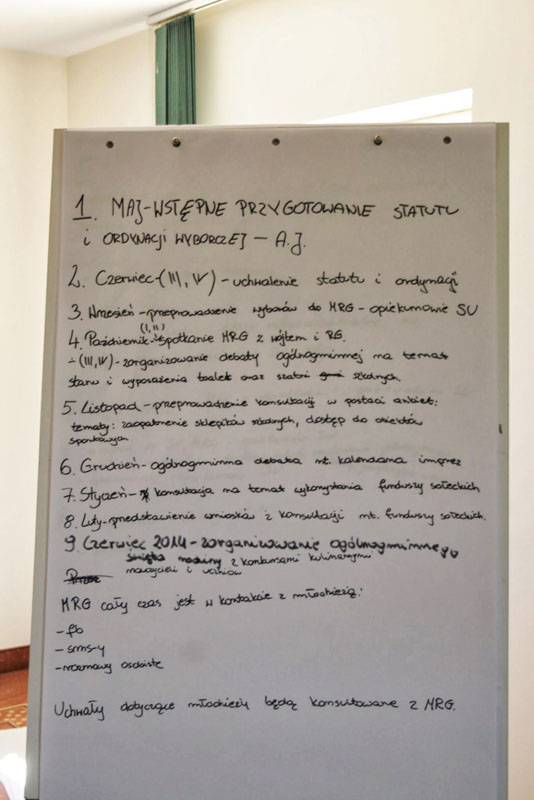 1. MAJ-WSTĘPNE PRZYGOTOWANIE STATUTU
i ORDYNACJI WYBORCZEJ – A.J.
2. Czerwiec-(III, IV) - uchwalenie statutu i ordynacji
3. Wrzesień - przeprowadzenie wyborów do MRG - opiekunowie SU
4. Październik-(I, II) spotkanie MRG z wójtem i RG.
-(III, IV)- zorganizowanie debaty ogólnogminnej na temat
stanu i wyposażenia toalet oraz szatni szkolnych.
5. Listopad - przeprowadzenie konsultacji w postaci ankiet:
tematy: zaopatrzenie sklepików szkolnych, dostęp do obiektów
sportowych
6. Grudzień - ogólnogminna debata nt. kalendarza imprez
7. Styczeń - konsultacja na temat wykorzystania funduszy sołeckich
8. Luty - przedstawienie wniosków z konsultacji nt. funduszy sołeckich.
9. Czerwiec 2014 - zorganizowanie ogólnogminnego
święta rodziny z konkursami kulinarnymi
nauczycieli i uczniów
MRG cały czas jest w kontakcie z młodzieżą:
- fb
- sms-y
- rozmowy osobiste
Uchwały dotyczące młodzieży będą konsultowane z MRG.